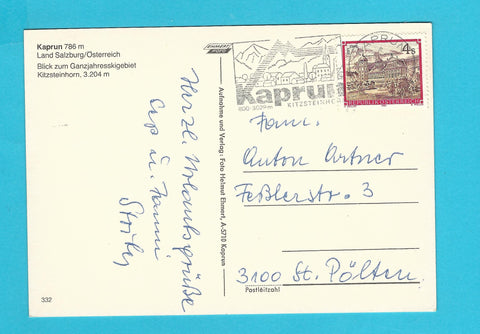 Kaprun 786 m
Land Salzburg/Österreich
Blick zum Ganzjahresskigebiet
Kitzsteinhorn, 3.204 m
Herzl. Urlaubsgrüße
Sepp u. Fanni
332
Aufnahme und Verlag: Foto Helmut Ehmert, A-5710 Kaprun
Kaprun
800-3029m
4s
REPUBLIK ÖSTERREICH
Fam.
Anton Ortner
Feßlerstr. 3
3100 St. Pölten
Postleitzahl